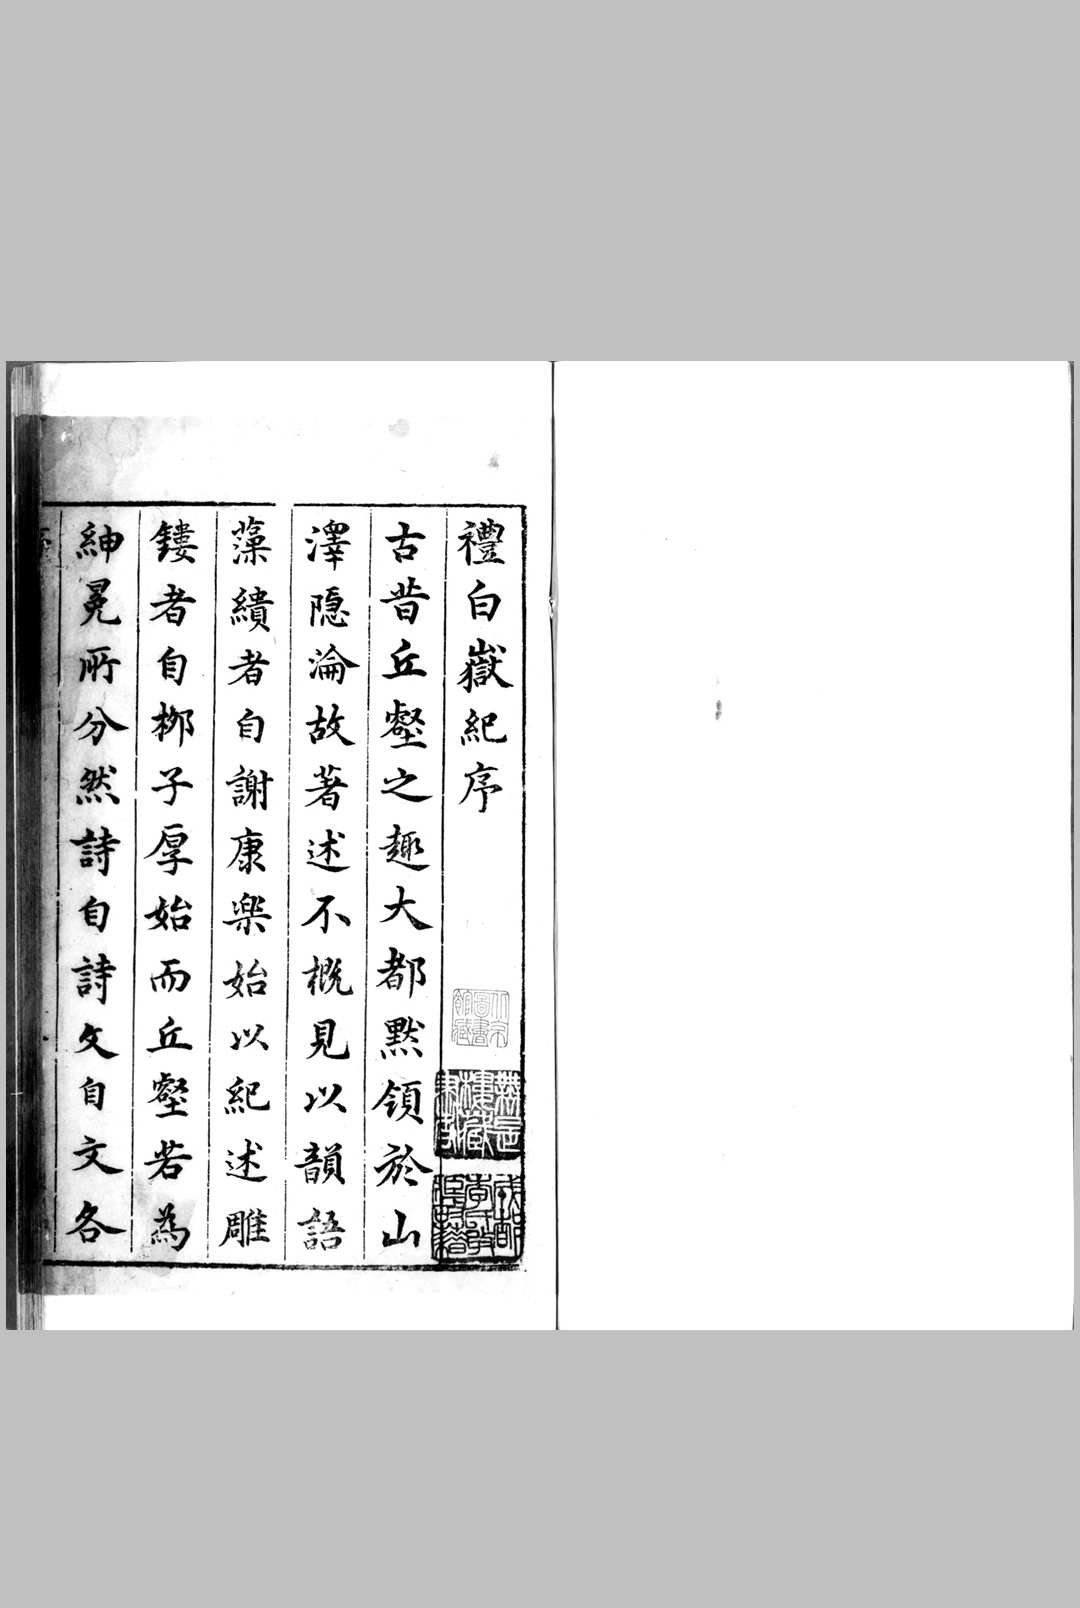 禮白嶽紀序
古昔丘壑之趣大都默領於山
澤隱淪故著述不概見以韻語
藻繢者自謝康樂始以紀述雕
鏤者自柳子厚始而丘壑若為
紳冕所分然詩自詩文自文各